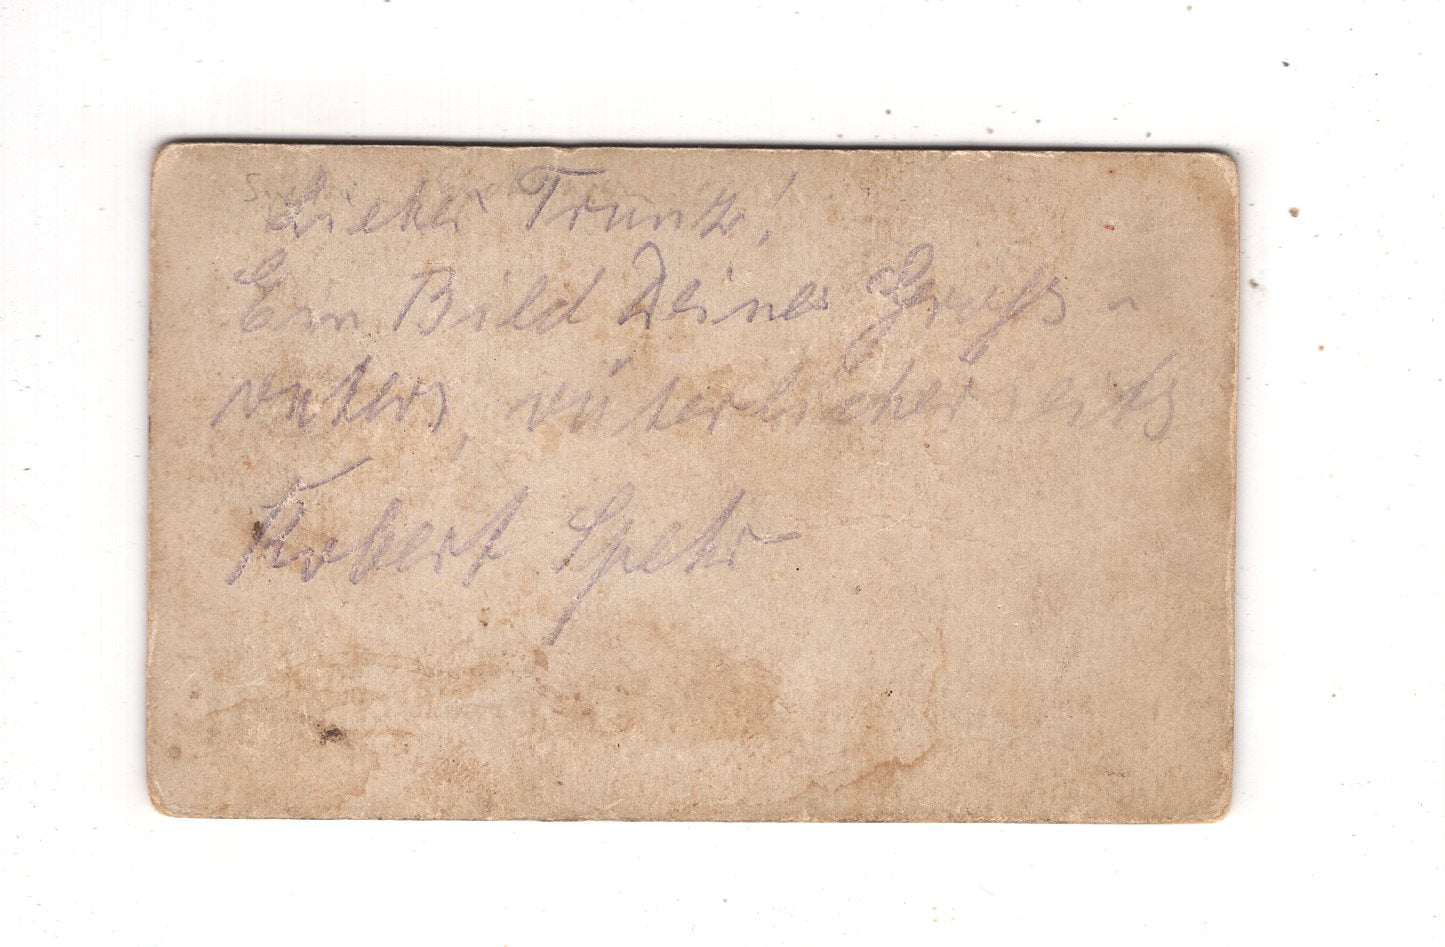 Lieber Frantz!
Ein Bild Deines Groß-
vaters, väterlicherseits
Robert Spehr